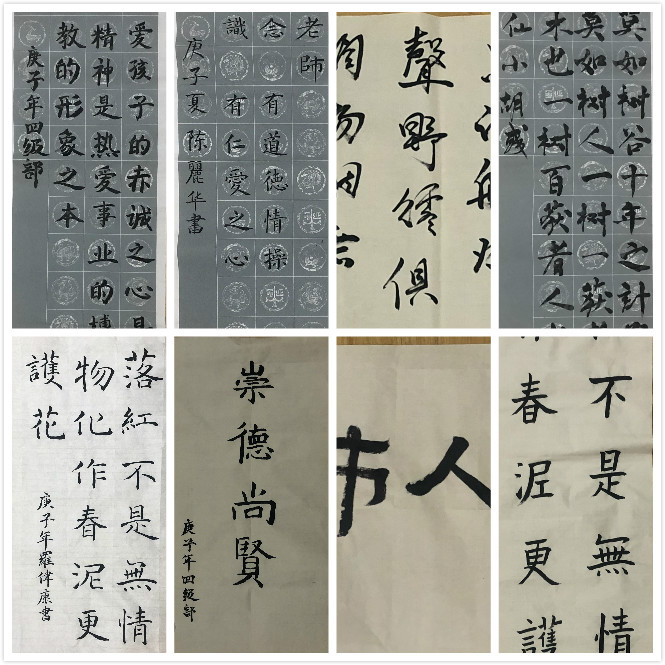 愛孩子的赤誠之心是
精神是热爱事业的博
教的形象之本
庚子年四级部
老師
念有道德情操
識有仁愛之心
庚子夏陈麗华書
聲野俱
莫如树谷十年之計
莫如树人一树一获
木也一树百获者人
仙小胡
落紅不是無情
物化作春泥更
護花
庚子年羅偉康書
崇德尚賢
庚子年四级部
人
不是無情
春泥更護